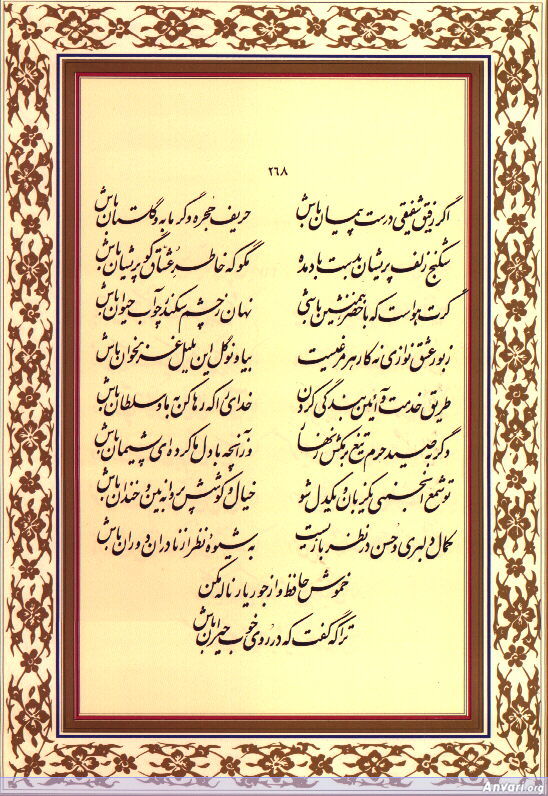 ۲۶۸
اگر رفیق شفیقی درست پیمان باش حریف حجره و گرمابه و گلستان باش
شکنج زلف پریشان بدست باد مده مگو که خاطر عشاق گو پریشان باش
گرت هواست که با خضر همنشین باشی نهان ز چشم سکندر چو آب حیوان باش
زبور عشق نوازی نه کار هر مرغیست بیا و نوگل این بلبل غزلخوان باش
طریق خدمت و آئین بندگی کردن خدای را که رها کن به ما و سلطان باش
دگر به صید حرم تیغ برمکش زنهار وز آنچه با دل ما کرده‌ای پشیمان باش
تو شمع انجمنی یکزبان و یکدل شو خیال و کوشش پروانه بین و خندان باش
کمال دلبری و حسن در نظر بازیست به شیوهٔ نظر از نادران دوران باش
خموش حافظ و از جور یار ناله مکن
ترا که گفت که در روی خوب حیران باش
Anvari.org